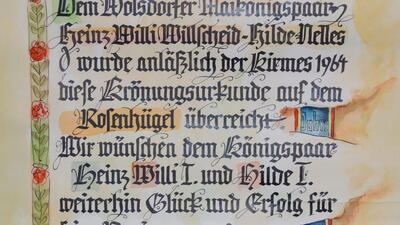 Dem Wolsdorfer Maikönigspaar
Heinz Willi Willscheid-Hilde Nelles
wurde anläßlich der Kirmes 1964
diese Krönungsurkunde auf dem
Rosenhügel überreicht.
Wir wünschen dem Königspaar
Heinz Willi I. und Hilde I.
weiterhin Glück und Erfolg für